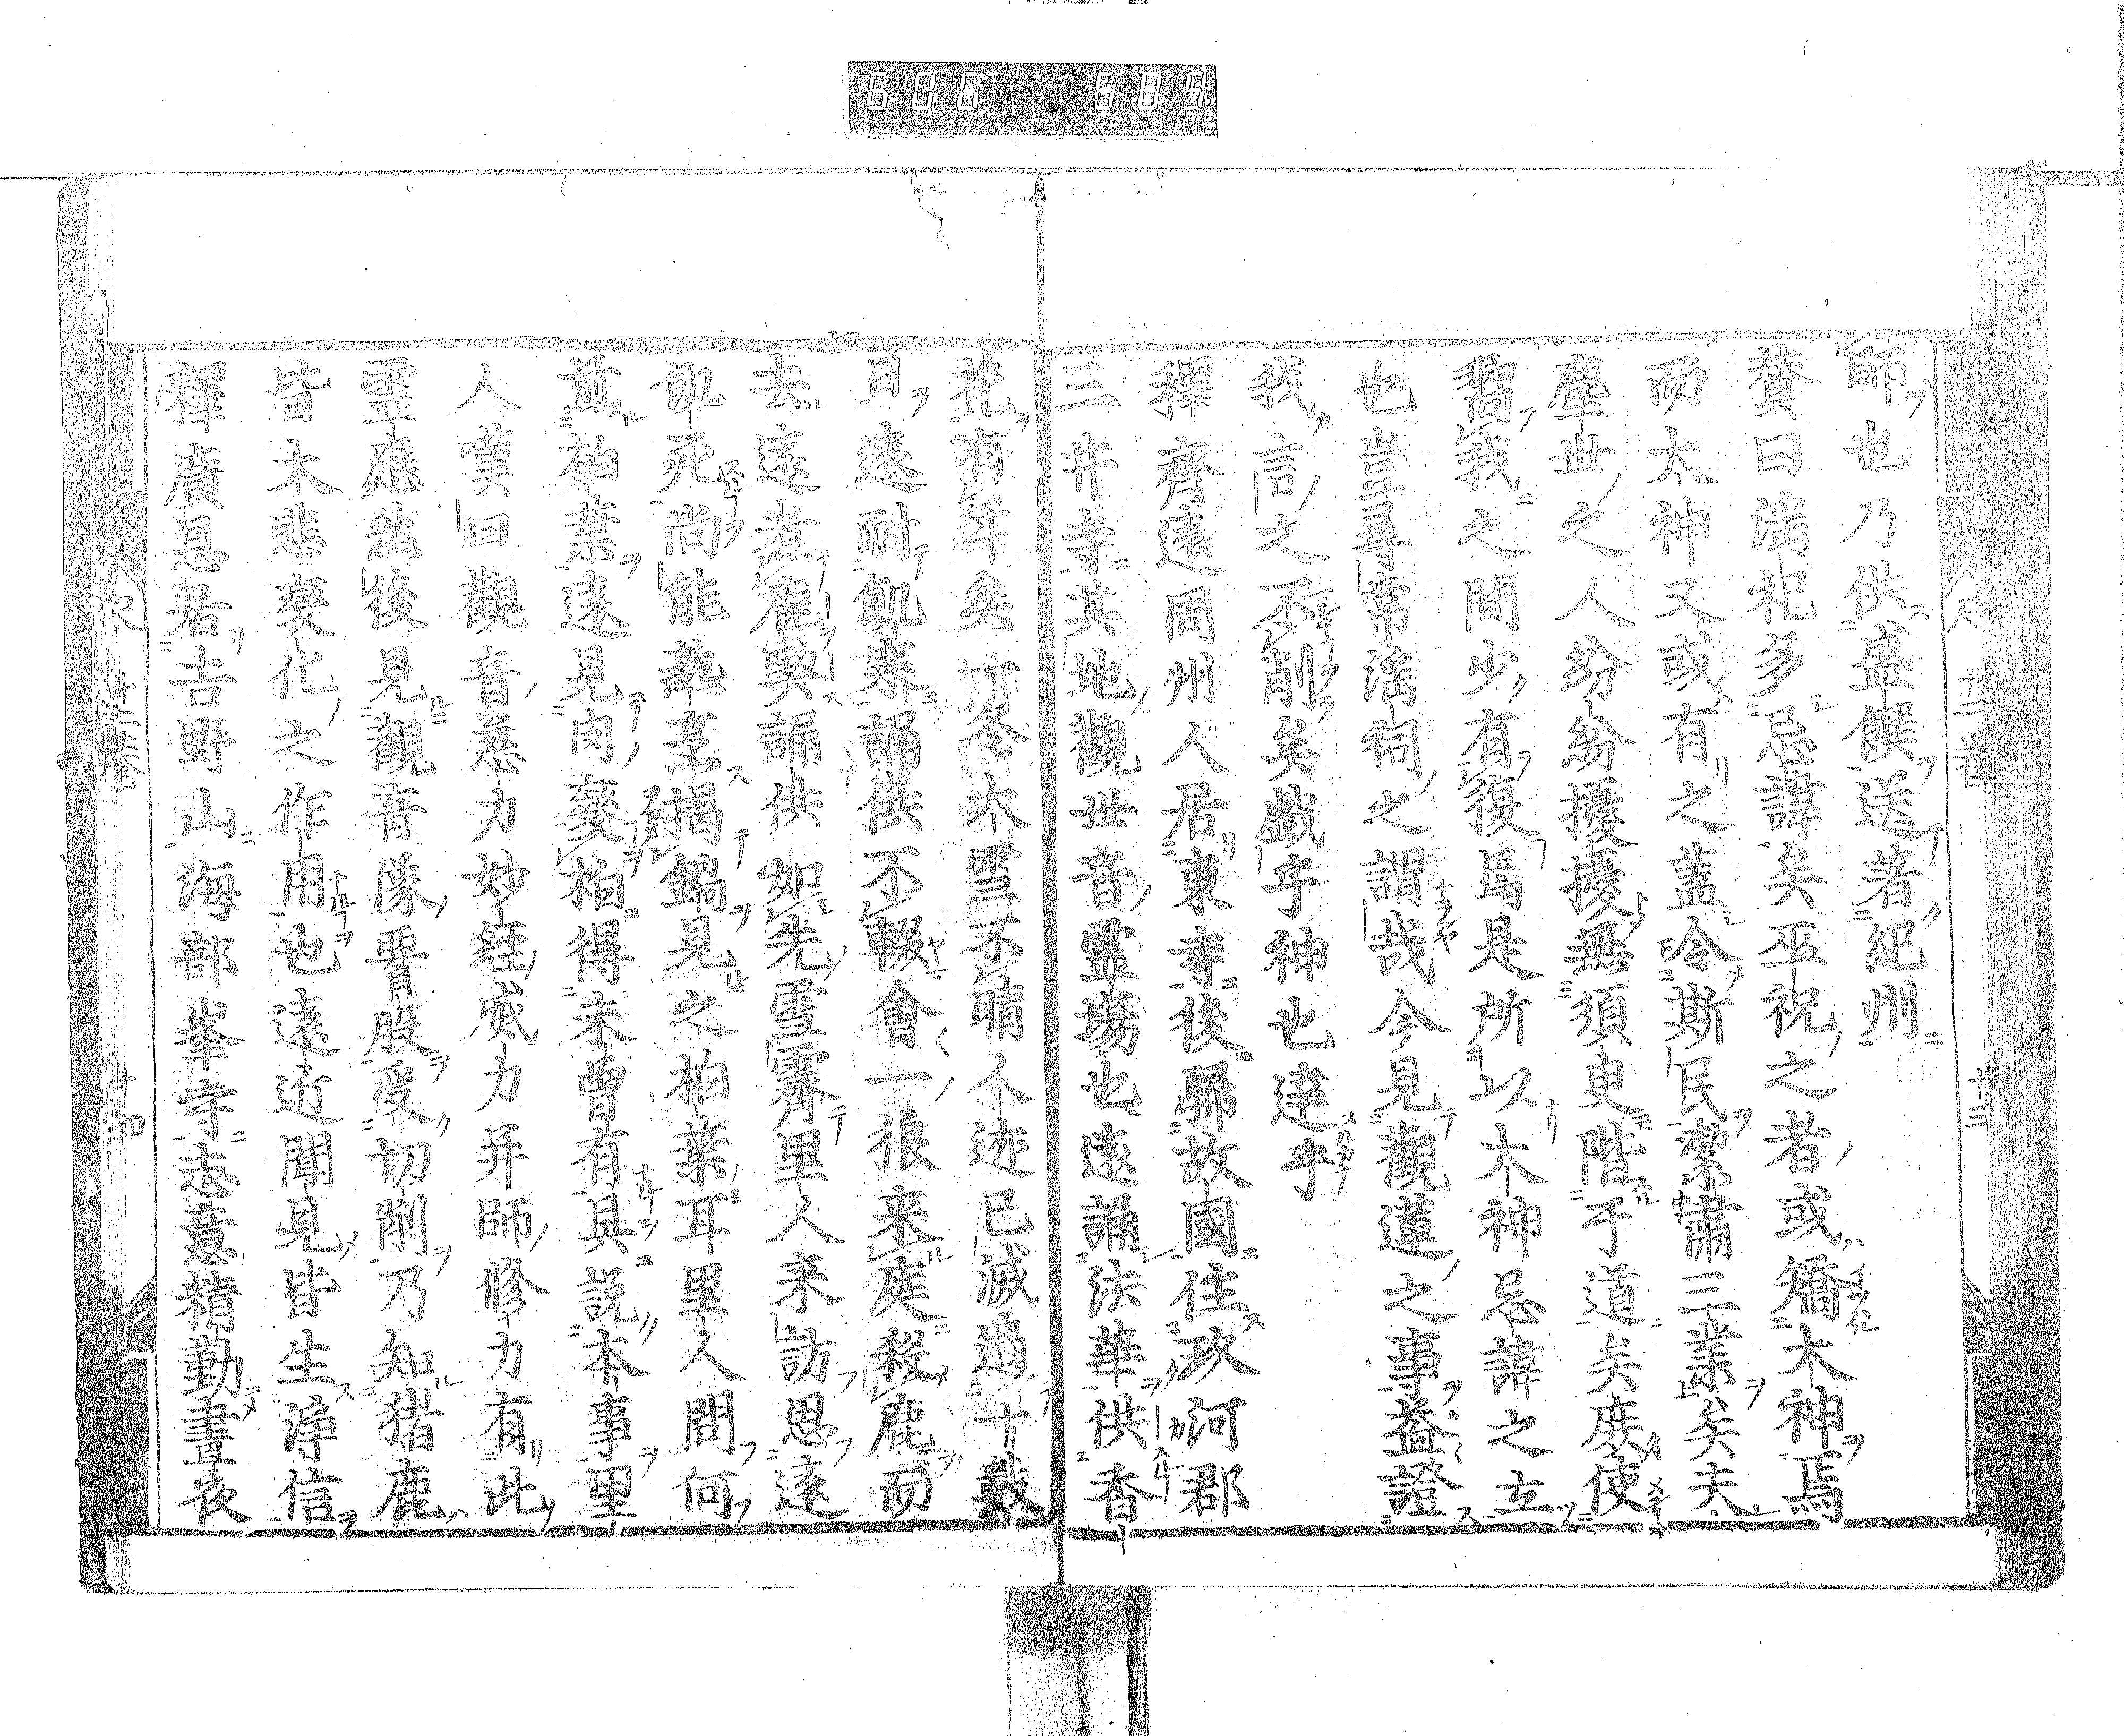 師也乃供盛饌送著紀州
賛曰淫祀多忌諱矣巫祝之者或矯大神焉
而大神又或有之蓋冷斯民絜肅三業矣夫
塵世之人紛紛擾擾無須臾階于道矣庶使
嚮我之間少有復焉是所以大神忌諱之立
也豈尋常淫祠之謂哉今見觀蓮之事益證
我言之不削矣戯乎神也達乎
釋齊遠周州人居東寺後歸故國住玖河郡
三井寺其地觀世音靈場也遠誦法華供香
花有年矣丁冬大雪不晴人迹已滅過十數
日遠耐飢寒誦供不輟會一狼来庭殺鹿而
去遠煮鹿喫誦供如先雪霽里人来訪思遠
飢死尚能熱烹揭鍋見之柏葉耳里人問何
煎柏葉遠見肉變柏得未曾有具說本事里
人嘆曰觀音慈力妙經威力并師修力有此
靈應然後見觀音像臀股受切削乃知猪鹿
皆木悲變化之作用也遠近聞見皆生淨信
釋廣恩居吉野山海部峯寺志意精勤晝夜
十二卷
十三
十二卷
十四
606 609